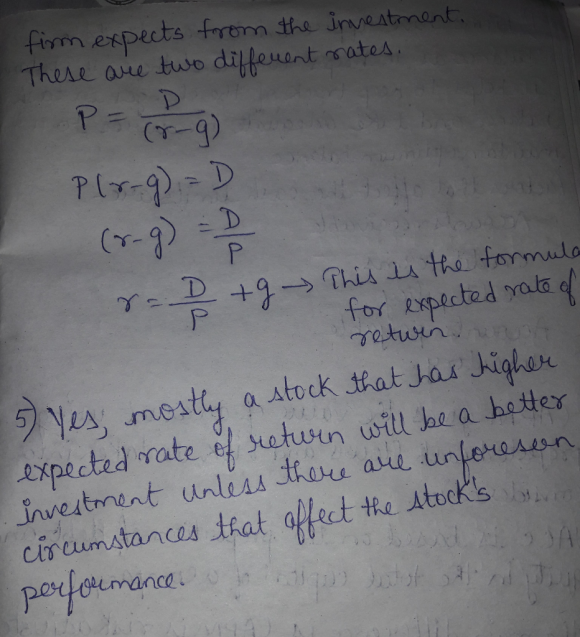 firm expects from the investment.
These are two different rates.
P = D/(r-g)
P(r-g) = D
(r-g) = D/P
r = D/P + g → This is the formula
for expected rate of
return.
5) Yes, mostly a stock that has higher
expected rate of return will be a better
investment unless there are unforeseen
circumstances that affect the stock's
performance.